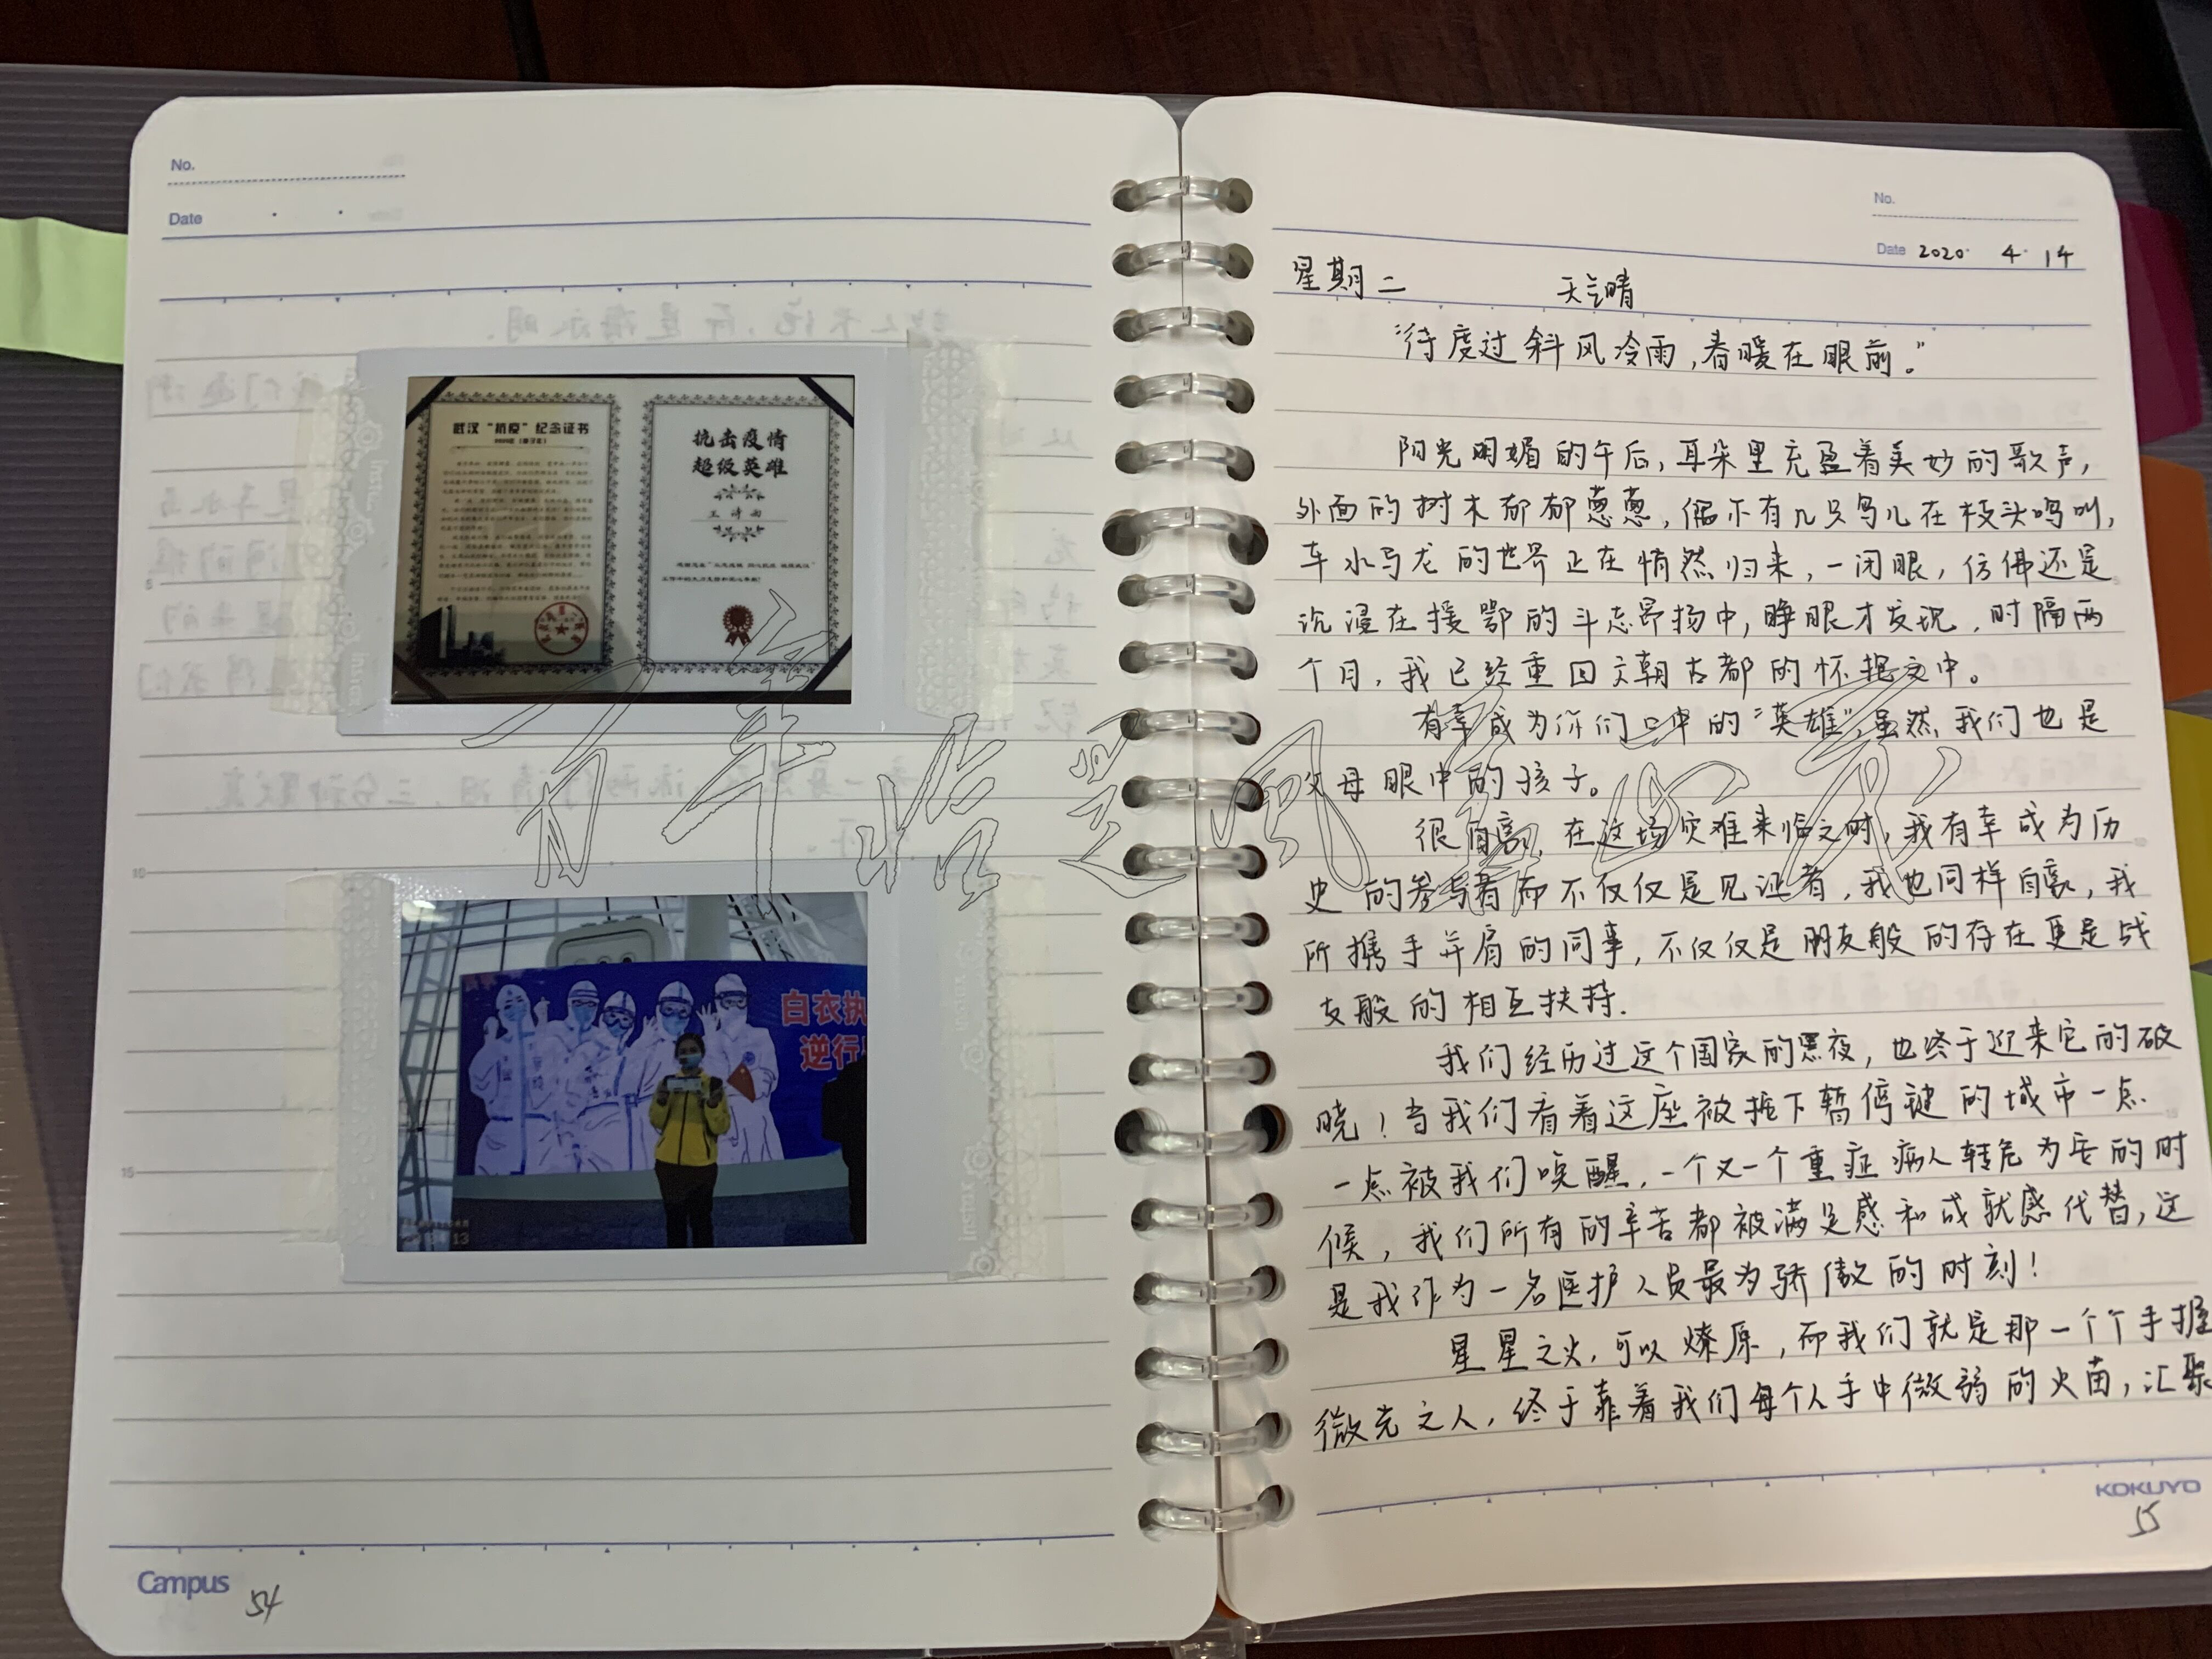 No.
Date
武汉“抗疫”纪念证书
抗击疫情
超级英雄
白衣执
逆行
13
instax
instax
instax
Campus
54
No.
Date 2020 4 14
星期二 天气晴
“待度过斜风冷雨,春暖在眼前。”
阳光明媚的午后,耳朵里充盈着美妙的歌声,
外面的树木郁郁葱葱,偶尔有几只鸟儿在枝头鸣叫,
车水马龙的世界正在悄然归来,一闭眼,仿佛还是
沉浸在援鄂的斗志昂扬中,睁眼才发现,时隔两
个月,我已经重回六朝古都的怀抱之中。
有幸成为你们口中的“英雄”,虽然我们也是
父母眼中的孩子。
很自豪,在这场灾难来临之时,我有幸成为历
史的参与者而不仅仅是见证者,我也同样自豪,我
所携手并肩的同事,不仅仅是朋友般的存在更是战
友般的相互扶持.
我们经历过这个国家的黑夜,也终于迎来它的破
晓!当我们看着这座被按下暂停键的城市一点
一点被我们唤醒,一个又一个重症病人转危为安的时
候,我们所有的辛苦都被满足感和成就感代替,这
是我作为一名医护人员最为骄傲的时刻!
星星之火,可以燎原,而我们就是那一个个手握
微光之人,终于靠着我们每个人手中微弱的火苗,汇聚
KOKUYO
55